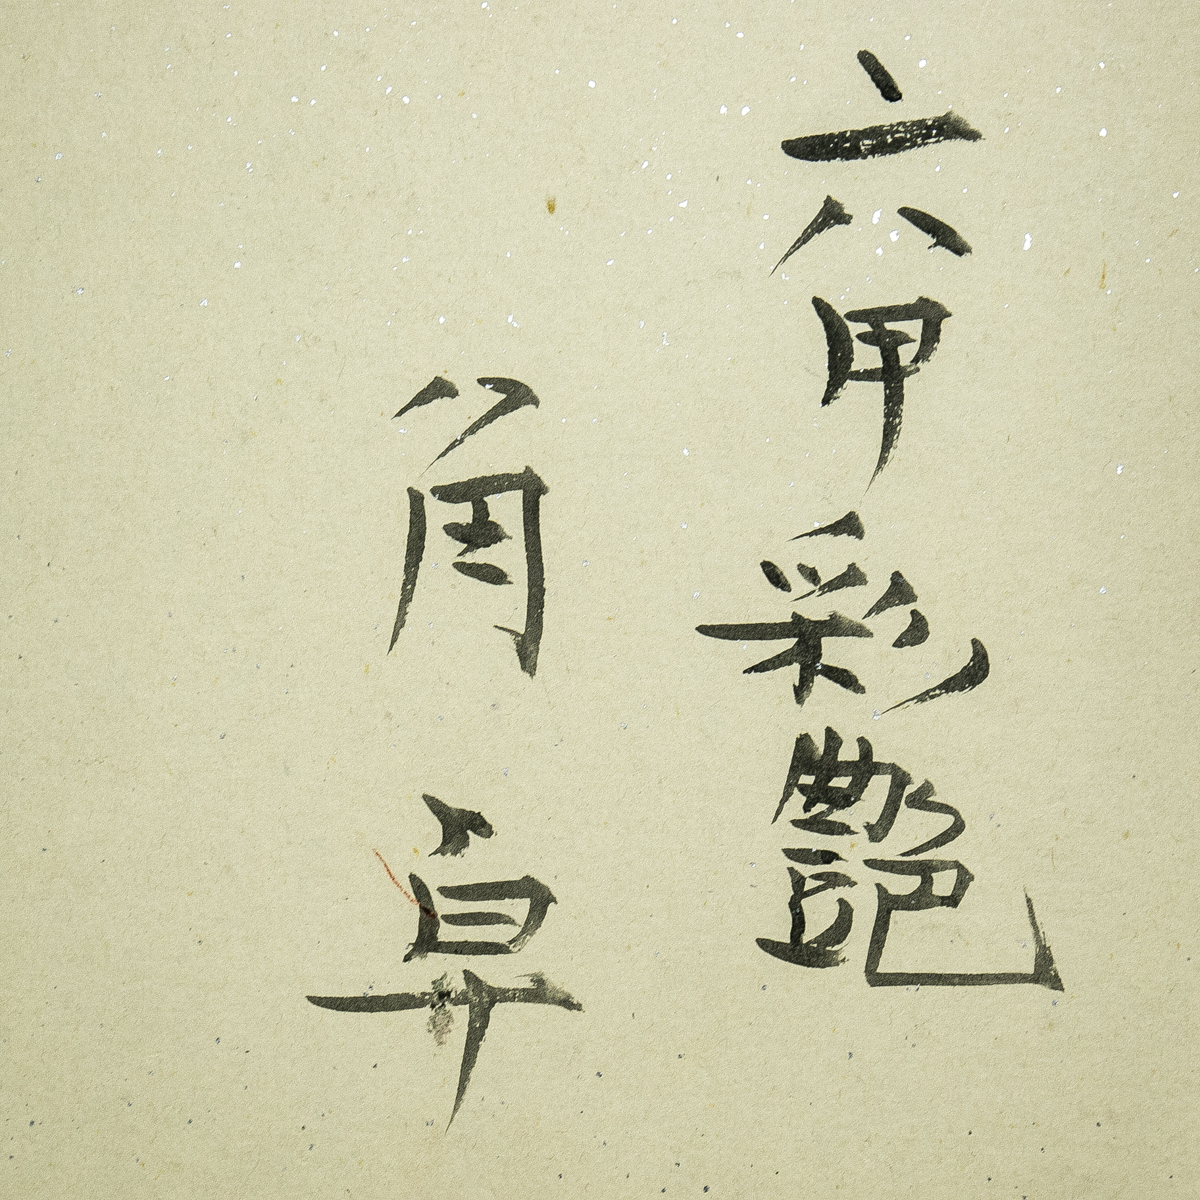 六甲彩艶
角卓